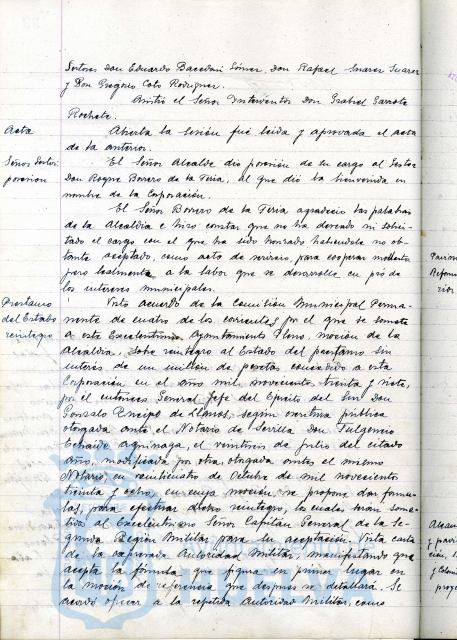 Señores Don Eduardo Bacedoni Gómez, Don Rafael Suarez Suarez
y Don Gregorio Coto Rodriguez.
Asistió el Señor Interventor Don Ysabel Garrote
Rochete.
Acta
Abierta la sesión fué leida y aprovada el acta
de la anterior.
Señor Gestor
posesion
El Señor Alcalde dió posesión de su cargo al Gestor
Don Roque Borrero de la Feria, al que dió la bienvenida en
nombre de la Corporación.
El Señor Borrero de la Feria agradeció las palabras
de la Alcaldia e hizo constar que no ha deseado ni solici-
tado el cargo con el que ha sido honrado habiendole no obs-
tante aceptado, como acto de servicio, para cooperar modesta
pero lealmente a la labor que se desarrolla en pró de
los intereses municipales.
Prestamo
del Estado
reintegro
Visto acuerdo de la Comisión Municipal Perma-
nente de cuatro de los corrientes, por el que se somete
a este Excelentisimo Ayuntamiento Pleno, moción de la
Alcaldia, sobre reintegro al Estado del prestamo sin
interés de un millón de pesetas concedido a esta
Corporación en el año mil novecientos treinta y siete,
por el entonces General Jefe del Ejército del Sur Don
Gonzalo Queipo de Llanos, según escritura pública
otorgada ante el Notario de Sevilla Don Fulgencio
Echaide Aguinaga, el veintiseis de Julio del citado
año, modificada por otra, otorgada antes el mismo
Notario, en veinticuatro de Octubre de mil novecientos
treinta y ocho, en cuya moción se propone dos formu-
las, para efectuar dicho reintegro, las cuales serán some-
tidas al Excelentisimo Señor Capitán General de la Se-
gunda Región Militar para su aceptación. Vista carta
de la expresada Autoridad Militar, manifestando que
acepta la fórmula que figura en primer lugar en
la moción de referencia que despues se detallará. Se
acordó oficiar a la repetida Autoridad Militar, como